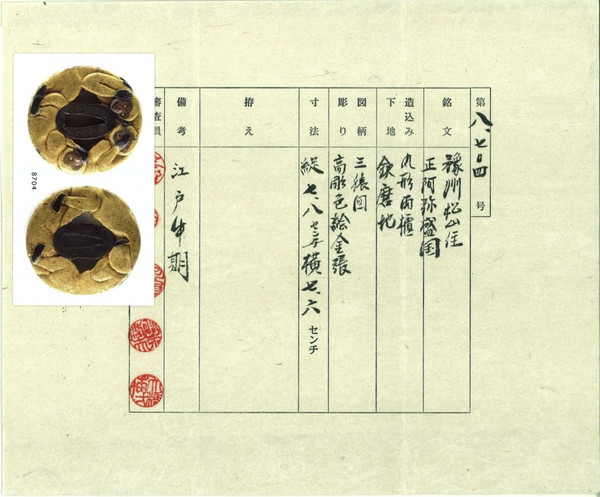 第八、七〇四号
銘文
豫州松山住
正阿弥盛国
造込み
下地
丸形両櫃
鉄磨地
図柄
彫り
三猿図
高彫色絵金張
寸法
縦七、八センチ横七、六センチ
拵え
備考
江戸中期
審査員
8704